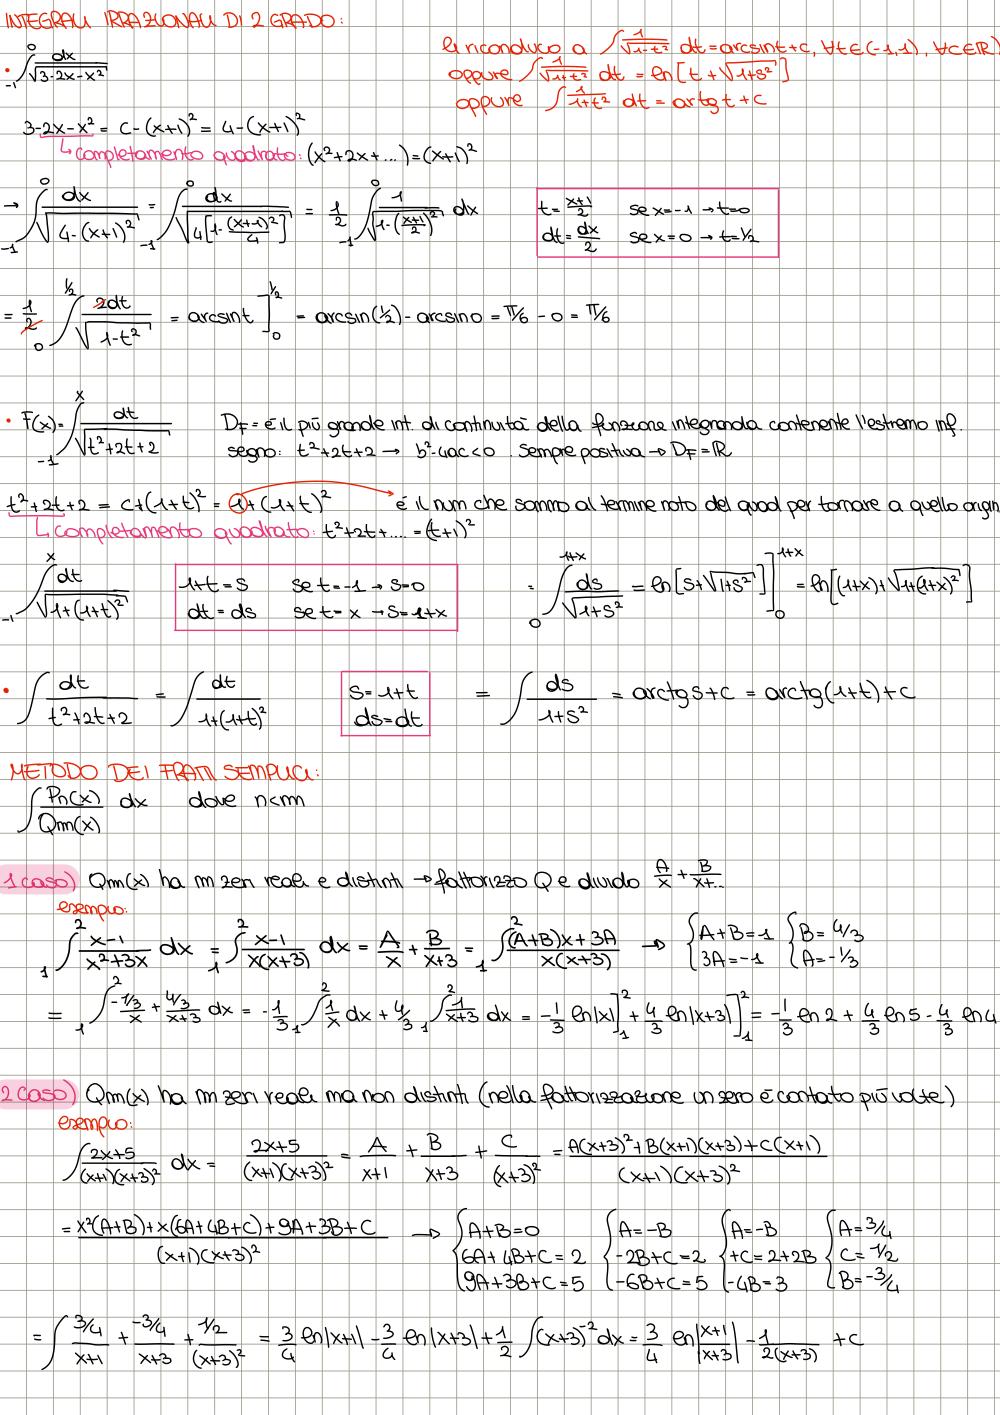 INTEGRALI IRRAZIONALI DI 2 GRADO:
li riconduco a ∫ 1/√(1-t²) dt = arcsint+c, ∀t∈(-1,1), ∀c∈ℝ)
oppure ∫ 1/√(1+t²) dt = ln[t+√(1+s²)]
oppure ∫ 1/(1+t²) dt = artg t + c
• ∫₋₁⁰ dx/√(3-2x-x²)
3-2x-x² = c-(x+1)² = 4-(x+1)²
↳ completamento quadrato: (x²+2x+...) = (x+1)²
→ ∫₋₁⁰ dx/√(4-(x+1)²) = ∫₋₁⁰ dx/√(4[1-(x+1)²/4]) = 1/2 ∫₋₁⁰ 1/√(1-((x+1)/2)²) dx
t = (x+1)/2 se x=-1 → t=0
dt = dx/2 se x=0 → t=1/2
= 1/2 ∫₀^(1/2) 2dt/√(1-t²) = arcsint ]₀^(1/2) = arcsin(1/2) - arcsin0 = π/6 - 0 = π/6
• F(x) = ∫₋₁ˣ dt/√(t²+2t+2) D_F = è il più grande int. di continuità della funzione integranda contenente l'estremo inf.
segno: t²+2t+2 → b²-4ac<0. Sempre positiva → D_F = ℝ
t²+2t+2 = c+(1+t)² = 1+(1+t)² è il num che sommo al termine noto del quad per tornare a quello origin
↳ completamento quadrato: t²+2t+.... = (t+1)²
∫₋₁ˣ dt/√(1+(1+t)²)
1+t = s se t=-1 → s=0
dt = ds se t=x → s=1+x
= ∫₀^(1+x) ds/√(1+s²) = ln[s+√(1+s²)] ]₀^(1+x) = ln[(1+x)+√(1+(1+x)²)]
• ∫ dt/(t²+2t+2) = ∫ dt/(1+(1+t)²)
s = 1+t
ds = dt
= ∫ ds/(1+s²) = arctgs+c = arctg(1+t)+c
METODO DEI FRATTI SEMPLICI:
∫ Pn(x)/Qm(x) dx dove n<m
1 caso) Qm(x) ha m zeri reali e distinti → fattorizzo Q e divido A/x + B/x+..
esempio:
∫₁² (x-1)/(x²+3x) dx = ∫₁² (x-1)/(x(x+3)) dx = A/x + B/(x+3) = ∫₁² ((A+B)x+3A)/(x(x+3)) → { A+B=1 3A=-1 { B=4/3 A=-1/3
= ∫₁² (-1/3)/x + (4/3)/(x+3) dx = -1/3 ∫₁² 1/x dx + 4/3 ∫₁² 1/(x+3) dx = -1/3 ln|x| ]₁² + 4/3 ln|x+3| ]₁² = -1/3 ln2 + 4/3 ln5 - 4/3 ln4
2 caso) Qm(x) ha m zeri reali ma non distinti (nella fattorizzazione un zero è contato più volte)
esempio:
∫ (2x+5)/((x+1)(x+3)²) dx = (2x+5)/((x+1)(x+3)²) = A/(x+1) + B/(x+3) + C/(x+3)² = (A(x+3)²+B(x+1)(x+3)+C(x+1))/((x+1)(x+3)²)
= (x²(A+B)+x(6A+4B+C)+9A+3B+C)/((x+1)(x+3)²) → { A+B=0 6A+4B+C=2 9A+3B+C=5 { A=-B -2B+C=2 -6B+C=5 { A=-B +C=2+2B -4B=3 { A=3/4 C=1/2 B=-3/4
= ∫ (3/4)/(x+1) + (-3/4)/(x+3) + (1/2)/(x+3)² = 3/4 ln|x+1| - 3/4 ln|x+3| + 1/2 ∫(x+3)⁻² dx = 3/4 ln|(x+1)/(x+3)| - 1/(2(x+3)) + c